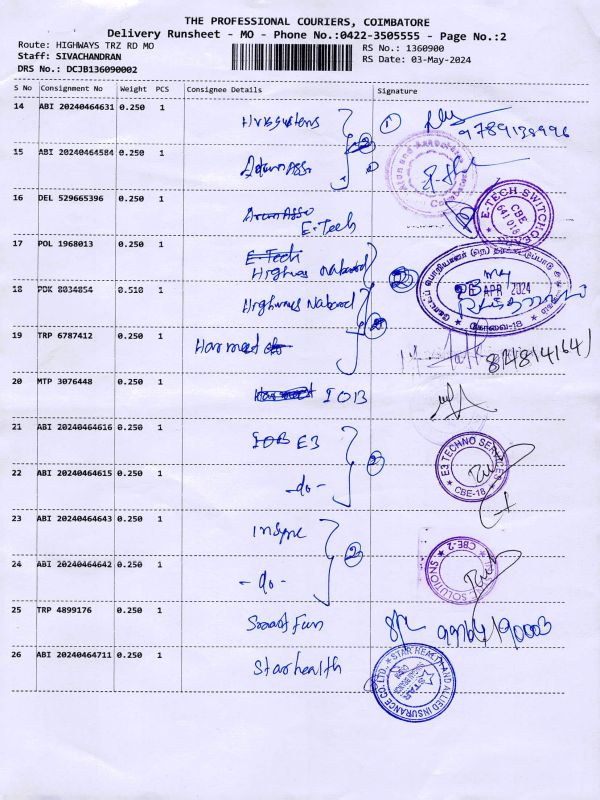 THE PROFESSIONAL COURIERS, COIMBATORE
Delivery Runsheet - MO - Phone No.:0422-3505555 - Page No.:2
Route: HIGHWAYS TRZ RD MO RS No.: 1360900
Staff: SIVACHANDRAN RS Date: 03-May-2024
DRS No.: DCJB136090002
S No Consignment No Weight PCS Consignee Details Signature
14 ABI 20240464631 0.250 1 1
9789138996
15 ABI 20240464584 0.250 1
16 DEL 529665396 0.250 1 Arun Asso
E-Tech
E-TECH SWITCHGE
CBE
641 018
17 POL 1968013 0.250 1 E-Tech
Highways
18 PDK 8034854 0.510 1 Highways
APR 2024
கோவை-18
19 TRP 6787412 0.250 1
8248141641
20 MTP 3076448 0.250 1 IOB
21 ABI 20240464616 0.250 1 IOB E3 2
E3 TECHNO SERVICES
CBE-18
22 ABI 20240464615 0.250 1 -do-
23 ABI 20240464643 0.250 1 Insync 2
24 ABI 20240464642 0.250 1 -do-
CBE-2
SOLUTIONS
25 TRP 4899176 0.250 1 Smart Fun
26 ABI 20240464711 0.250 1 Star health
STAR HEALTH AND ALLIED INSURANCE CO.LTD.,
STAR